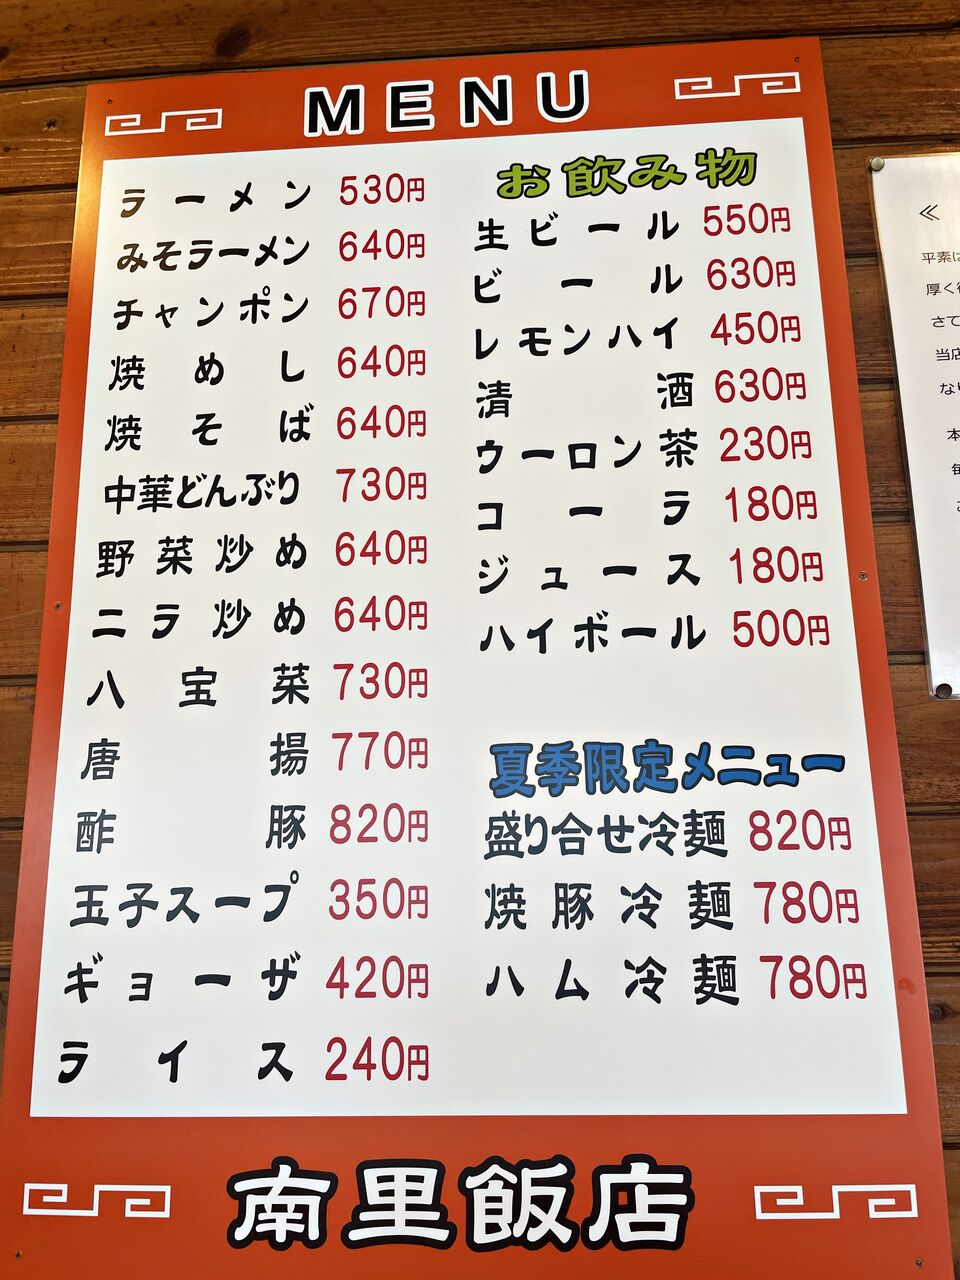 MENU
ラーメン 530円
みそラーメン 640円
チャンポン 670円
焼めし 640円
焼そば 640円
中華どんぶり 730円
野菜炒め 640円
ニラ炒め 640円
八宝菜 730円
唐揚 770円
酢豚 820円
玉子スープ 350円
ギョーザ 420円
ライス 240円
お飲み物
生ビール 550円
ビール 630円
レモンハイ 450円
清酒 630円
ウーロン茶 230円
コーラ 180円
ジュース 180円
ハイボール 500円
夏季限定メニュー
盛り合せ冷麺 820円
焼豚冷麺 780円
ハム冷麺 780円
南里飯店
≪
平素は
厚く
さて
当店
なり
本
毎